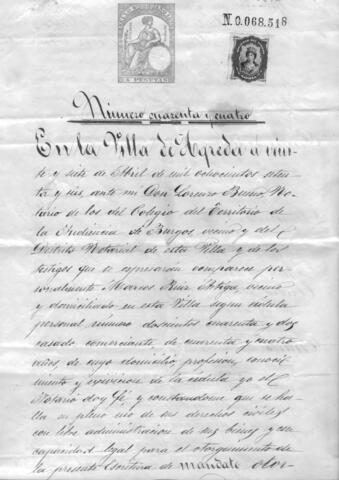 N.0.068.518
Número cuarenta y cuatro
En la Villa de Agreda a vein-
te y siete de Abril de mil ochocientos seten-
ta y seis, ante mi Don Lorenzo Bueno, No-
tario de los del Colegio del Territorio de
la Audiencia de Burgos, vecino y del
Distrito Notarial de esta Villa y de los
testigos que se espresarán comparece per-
sonalmente Marcos Ruiz vecino
y domiciliado en esta Villa segun cédula
personal número doscientos cuarenta y dos
casado comerciante, de cuarenta y cuatro
años, de cuyo domicilio, profesion, conoci-
miento y de la cédula yo el
Notario doy fé, y constandome que se ha-
lla en pleno uso de sus derechos civiles
con libre administracion de sus bienes y con
capacidad legal para el otorgamiento de
la presente Escritura de mandato